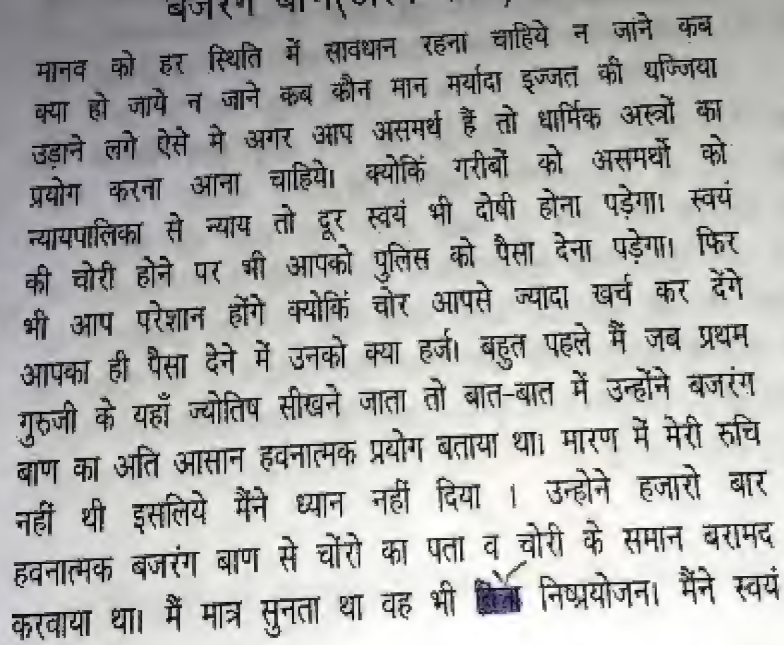 बजरंग बाण
मानव को हर स्थिति में सावधान रहना चाहिये न जाने कब
क्या हो जाये न जाने कब कौन मान मर्यादा इज्जत की धज्जिया
उड़ाने लगे ऐसे मे अगर आप असमर्थ हैं तो धार्मिक अस्त्रों का
प्रयोग करना आना चाहिये। क्योकिं गरीबों को असमर्थो को
न्यायपालिका से न्याय तो दूर स्वयं भी दोषी होना पड़ेगा। स्वयं
की चोरी होने पर भी आपको पुलिस को पैसा देना पड़ेगा। फिर
भी आप परेशान होंगे क्योकिं चोर आपसे ज्यादा खर्च कर देंगे
आपका ही पैसा देने में उनको क्या हर्ज। बहुत पहले मैं जब प्रथम
गुरुजी के यहाँ ज्योतिष सीखने जाता तो बात-बात में उन्होंने बजरंग
बाण का अति आसान हवनात्मक प्रयोग बताया था। मारण में मेरी रुचि
नहीं थी इसलिये मैंने ध्यान नहीं दिया । उन्होने हजारो बार
हवनात्मक बजरंग बाण से चोंरो का पता व चोरी के समान बरामद
करवाया था। मैं मात्र सुनता था वह भी निष्प्रयोजन। मैंने स्वयं